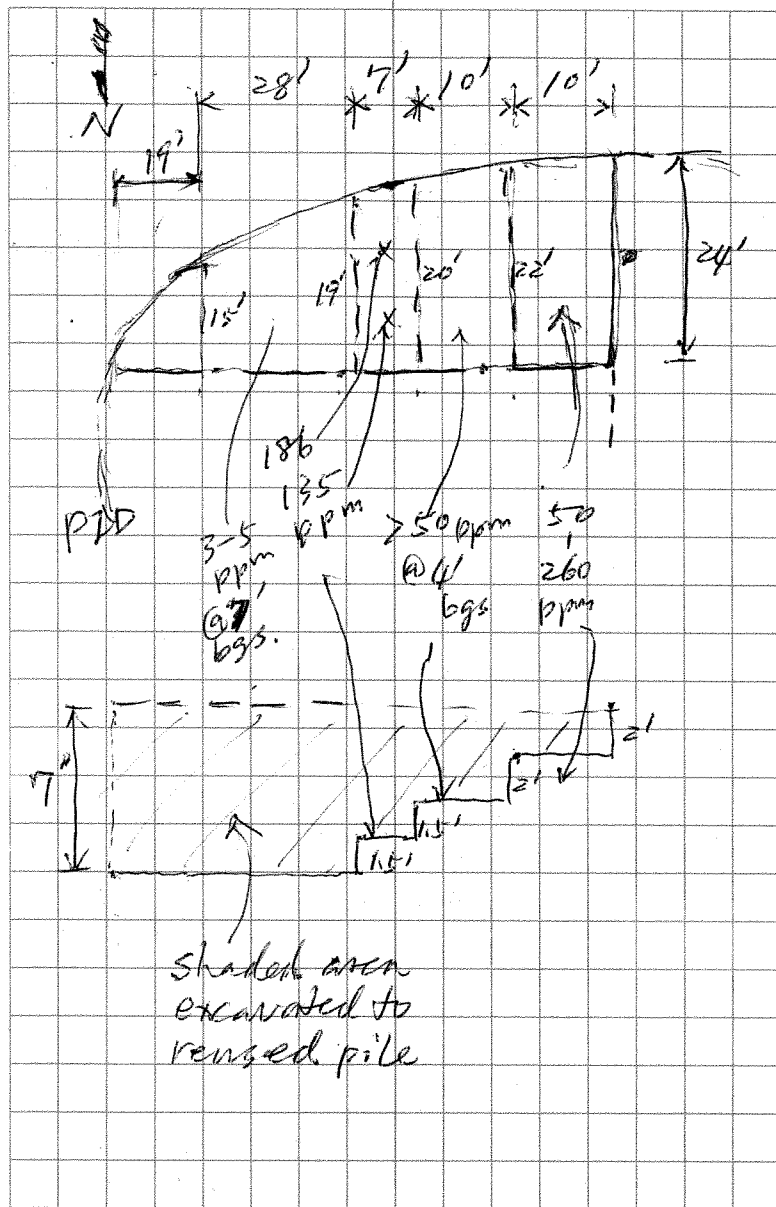 N
28' 7' 10' 10'
19'
24'
15' 19' 20' 22'
186
135
ppm
PID
3-5
ppm
@7'
bgs.
>50 ppm
@4'
bgs
50
260
ppm
7'
2'
2'
1.5'
1.5'
shaded area
excavated to
reused pile